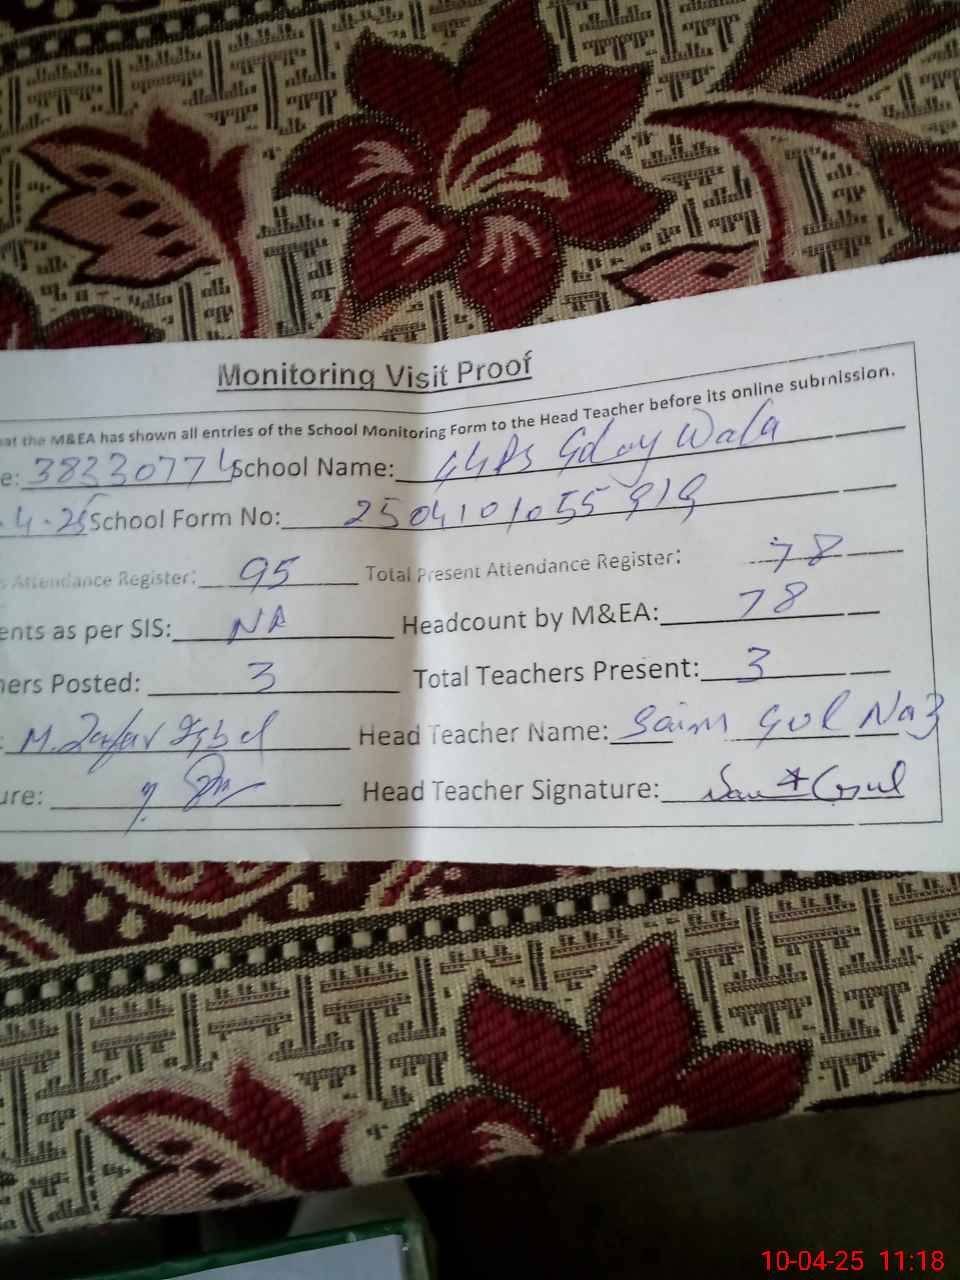 Monitoring Visit Proof
at the M&EA has shown all entries of the School Monitoring Form to the Head Teacher before its online submission.
e: 38330774 School Name: GGPS Gday Wala
.4.25 School Form No: 2504101055919
s Attendance Register: 95 Total Present Attendance Register: 78
ents as per SIS: NA Headcount by M&EA: 78
hers Posted: 3 Total Teachers Present: 3
: M. Zafar Iqbal Head Teacher Name: Saim Gul Naz
ure: Head Teacher Signature: Gul
10-04-25 11:18